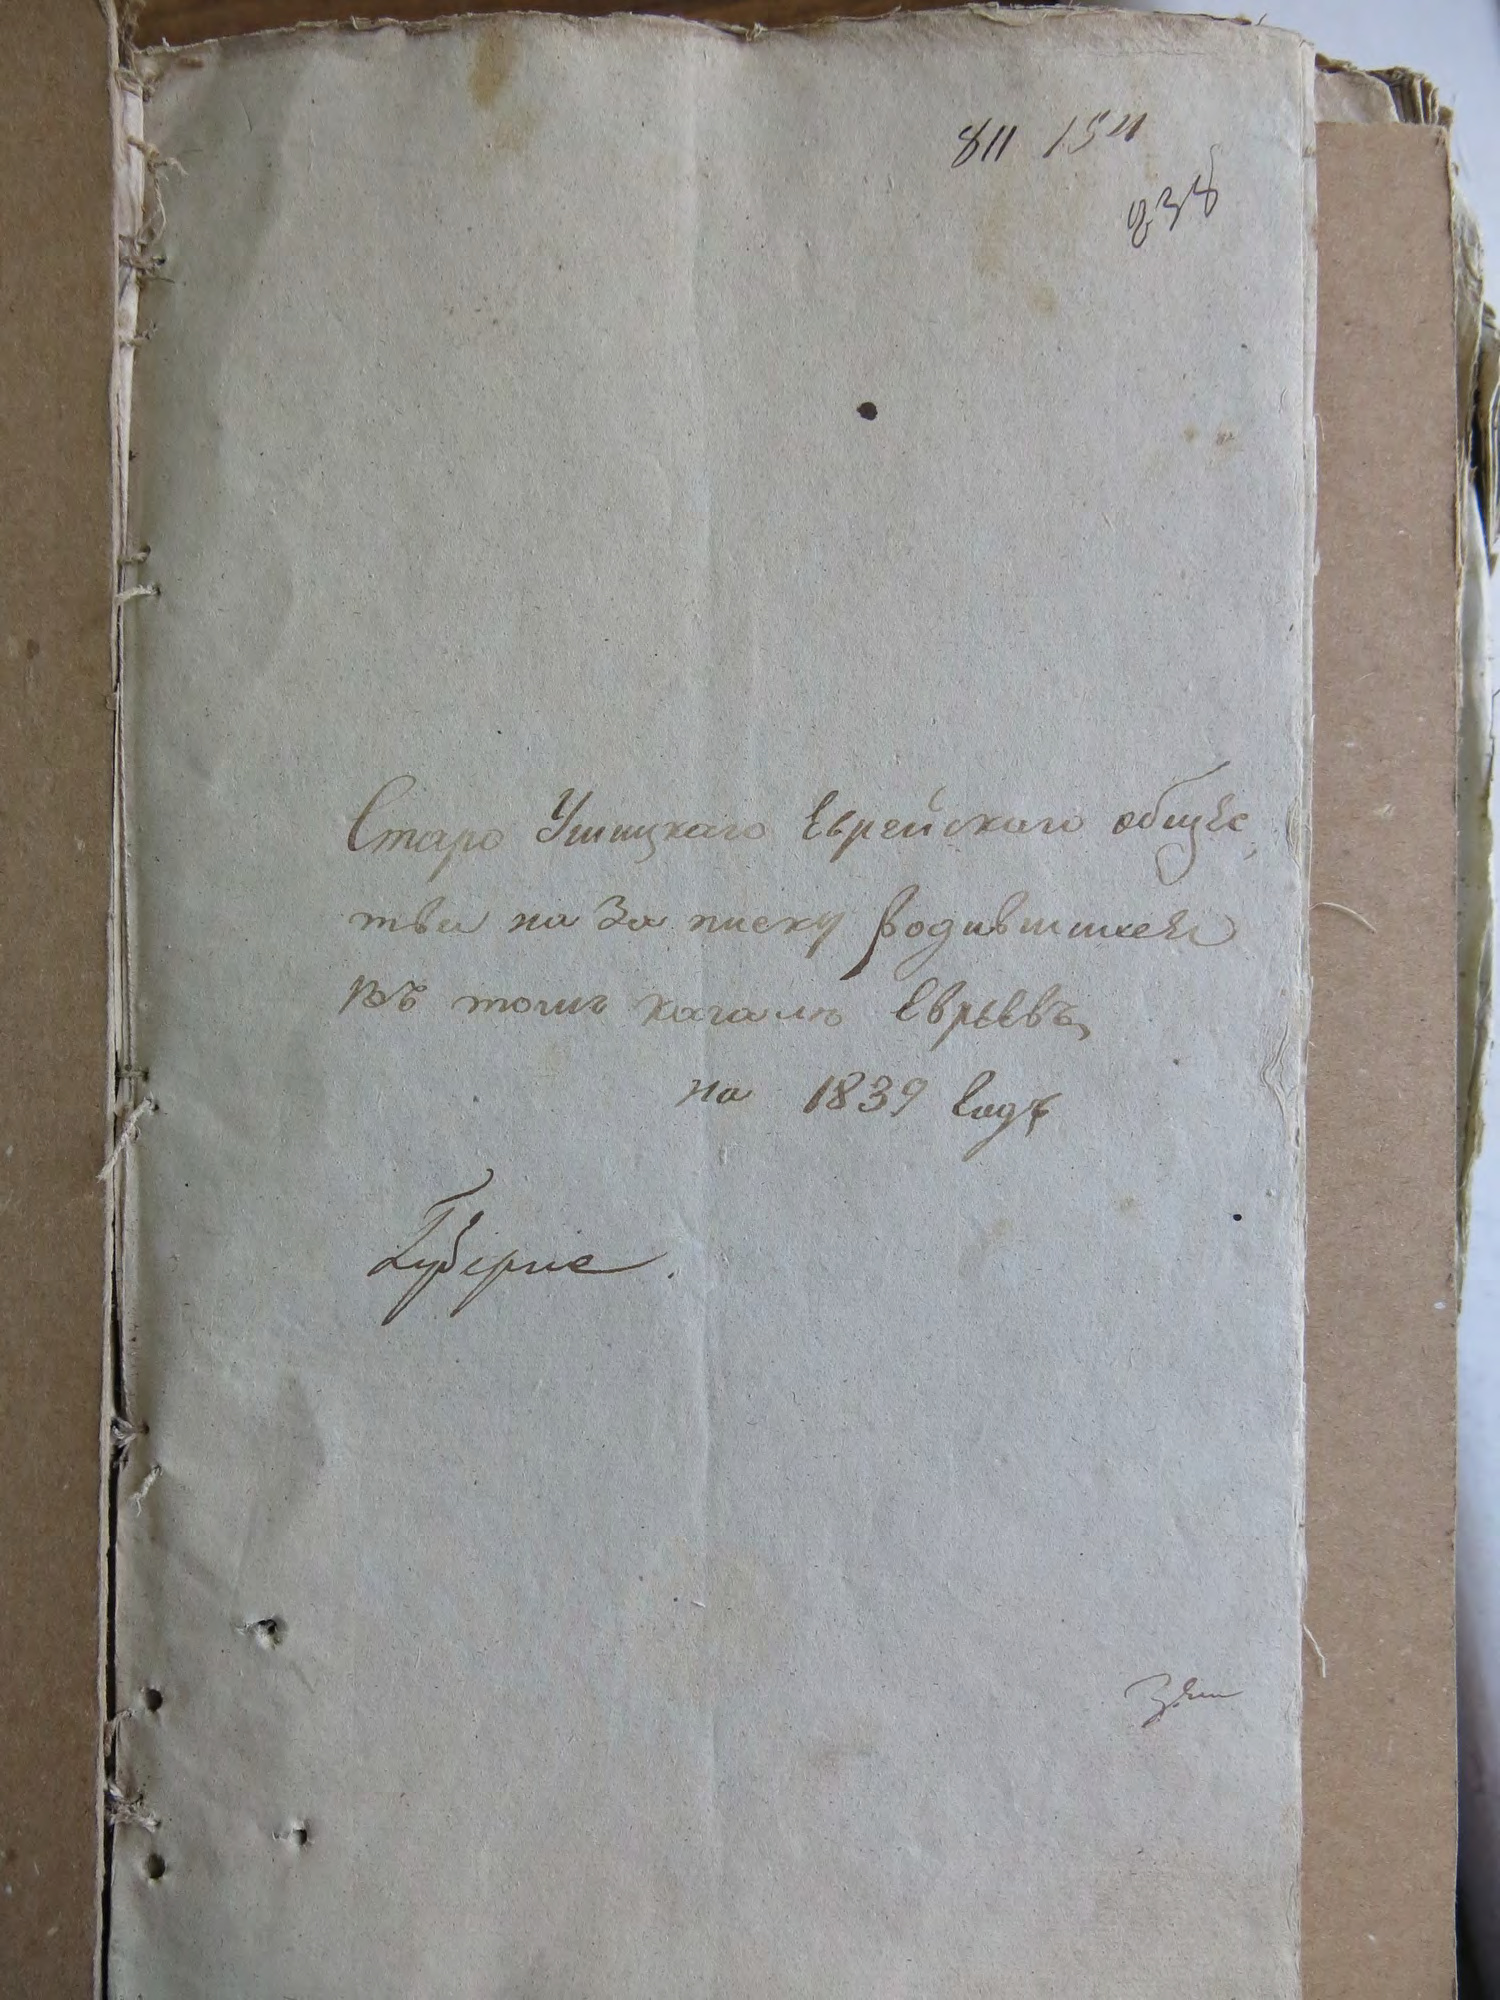 811 154
238
Старо Ушицкаго Еврейскаго общес
тва на За писку родившихся
въ томъ кагалѣ Евреевъ
на 1839 годъ